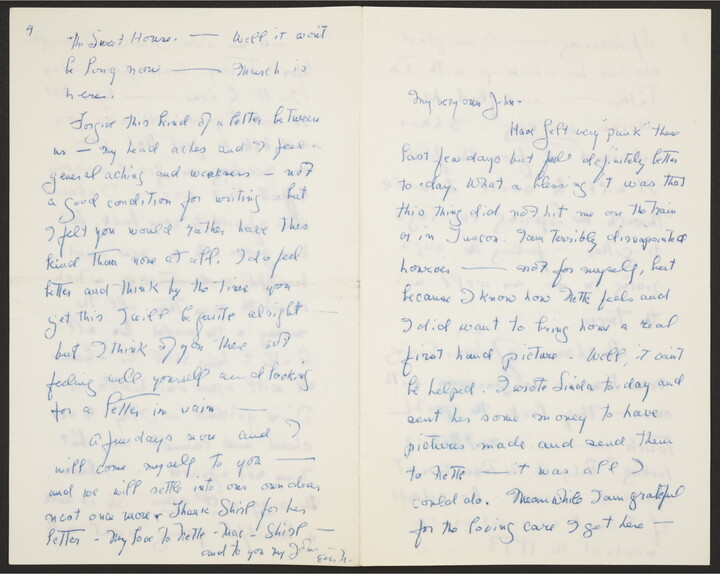 4
the Sweet House. — Well it won't
be long now — March is
here.
Forgive this kind of a letter between
us — my head aches and I feel a
general aching and weakness — not
a good condition for writing but
I felt you would rather have this
kind than none at all. I do feel
better and think by the time you
get this I will be quite alright —
but I think of you there not
feeling well yourself and looking
for a letter in vain —
a few days more and I
will come myself to you —
and we will settle into our own dear
nest once more. Thank Shirl for her
letter - My love to Nette - Mac - Shirl —
and to you my John
My very own John-
Have felt very "punk" these
last few days but feel definitely better
to-day. What a blessing it was that
this thing did not hit me on the train
or in Tuscon. I am terribly disappointed
however — not for myself, but
because I know how Nette feels and
I did want to bring home a real
first hand picture. Well, it can't
be helped. I wrote Linda to-day and
sent her some money to have
pictures made and send them
to Nette — it was all I
could do. Meanwhile I am grateful
for the loving care I get here —